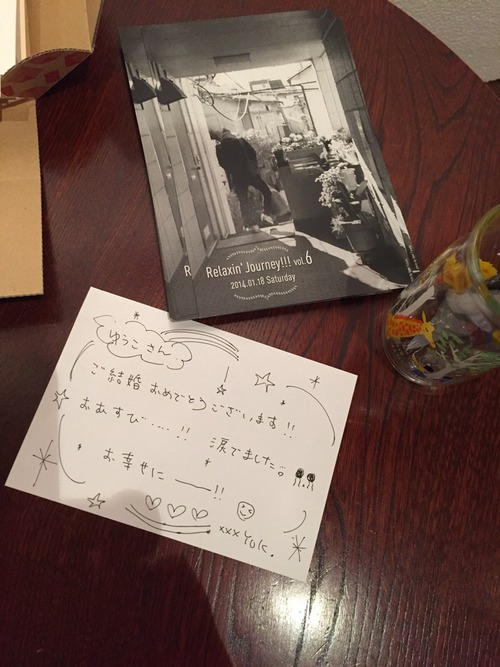 R
Relaxin' Journey!!! vol.6
2014.01.18 Saturday
ゆうこさん
ご結婚おめでとうございます!!
おむすび.....!! 涙でました。
お幸せに ――!!
xxx YUK.